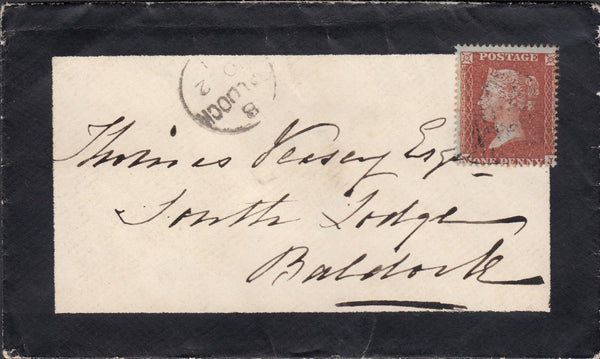 POSTAGE
ONE PENNY
Thomas Veasey Esqr
South Lodge
Baldock